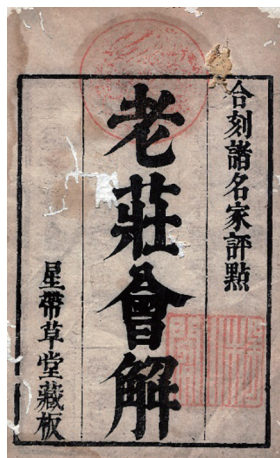 合刻諸名家評點
老莊會解
星帶草堂藏板